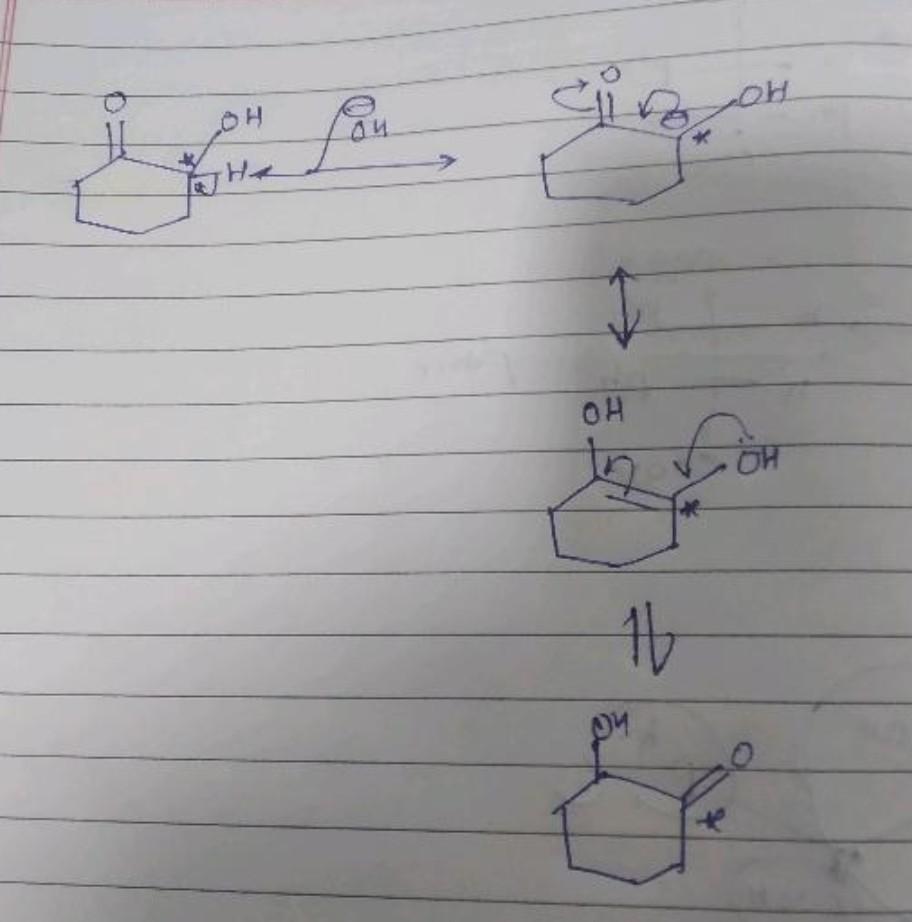 O OH ⊖OH H *
O OH ⊖ *
OH ÖH *
OH O *